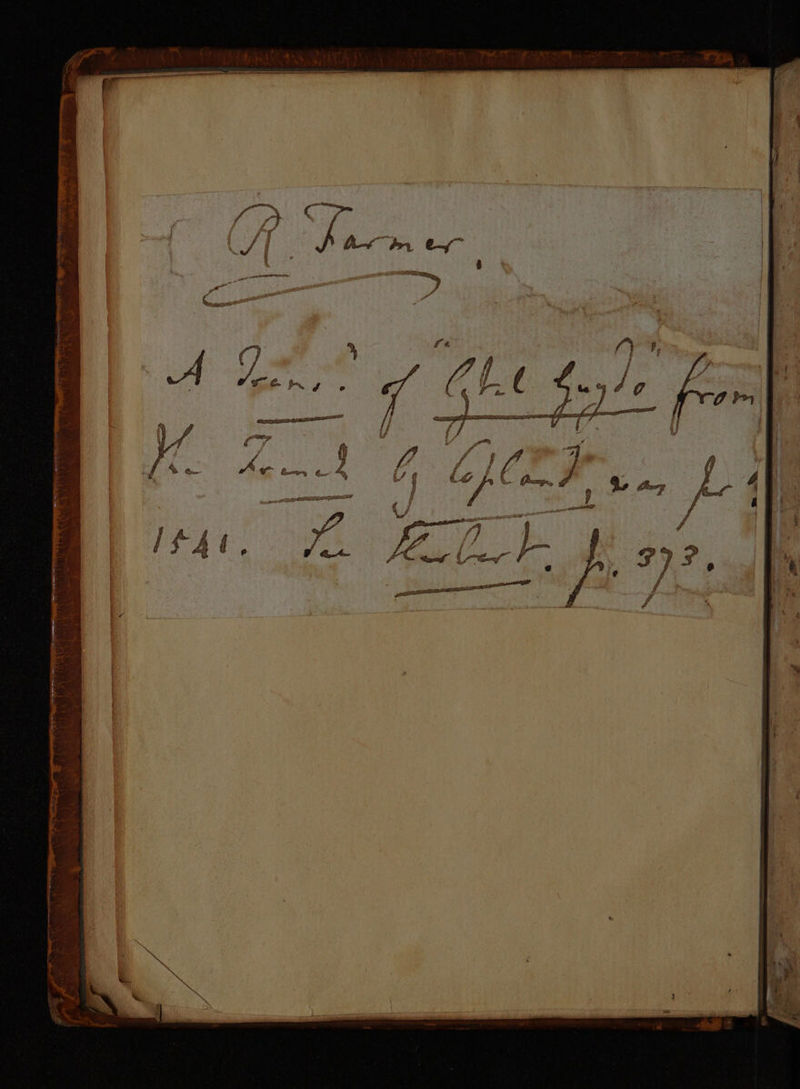 R. Farmer.
A of Guydo" from
the French by Copland, was
1541. See Herbert. p. 373.